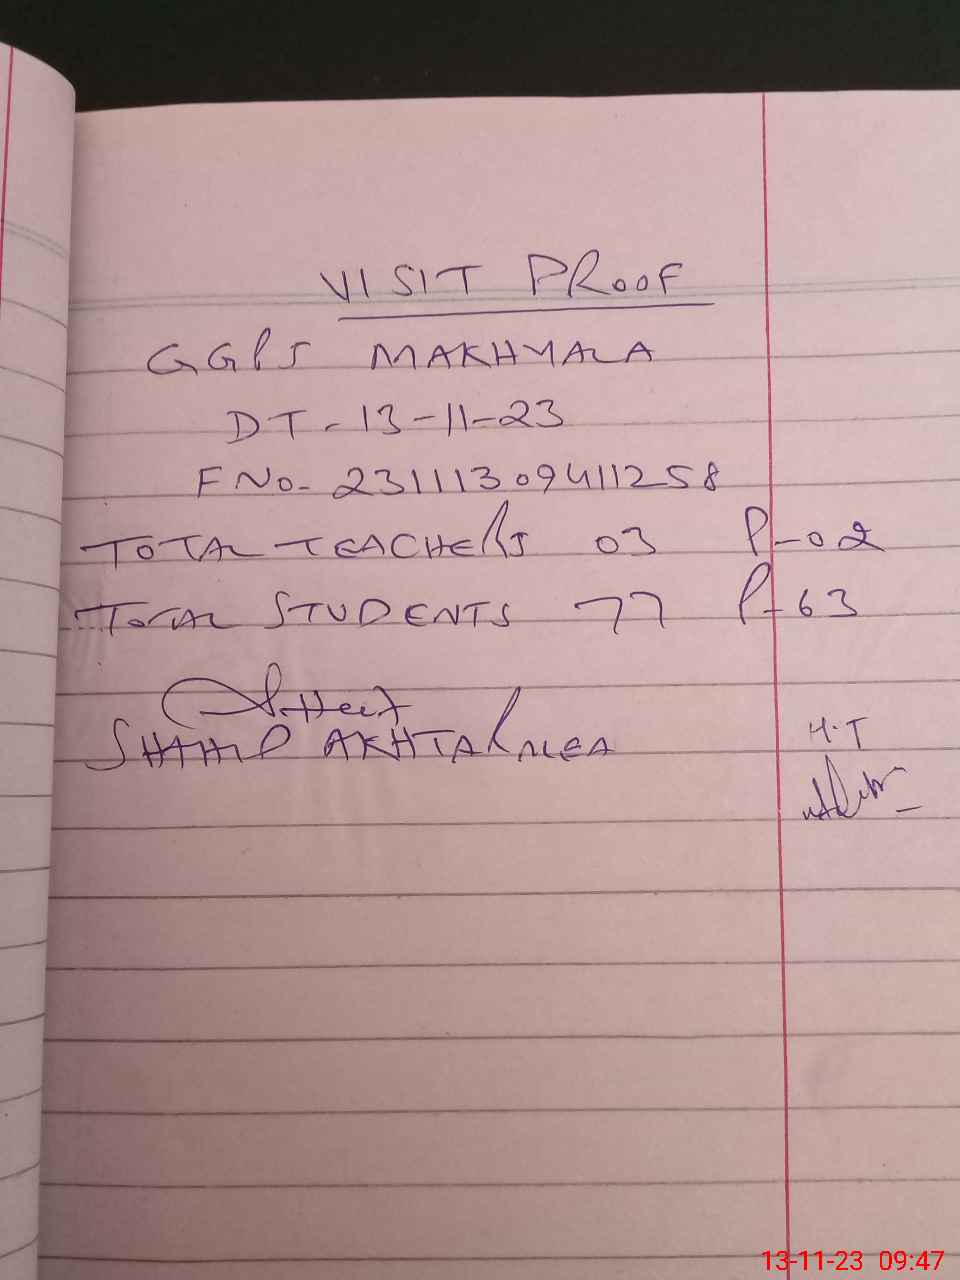 VISIT PROOF
GGPS MAKHYALA
DT - 13-11-23
F No. 23111309411258
TOTAL TEACHERS 03 P-02
TOTAL STUDENTS 77 P-63
SHAHID AKHTAR MEA
H.T
13-11-23 09:47